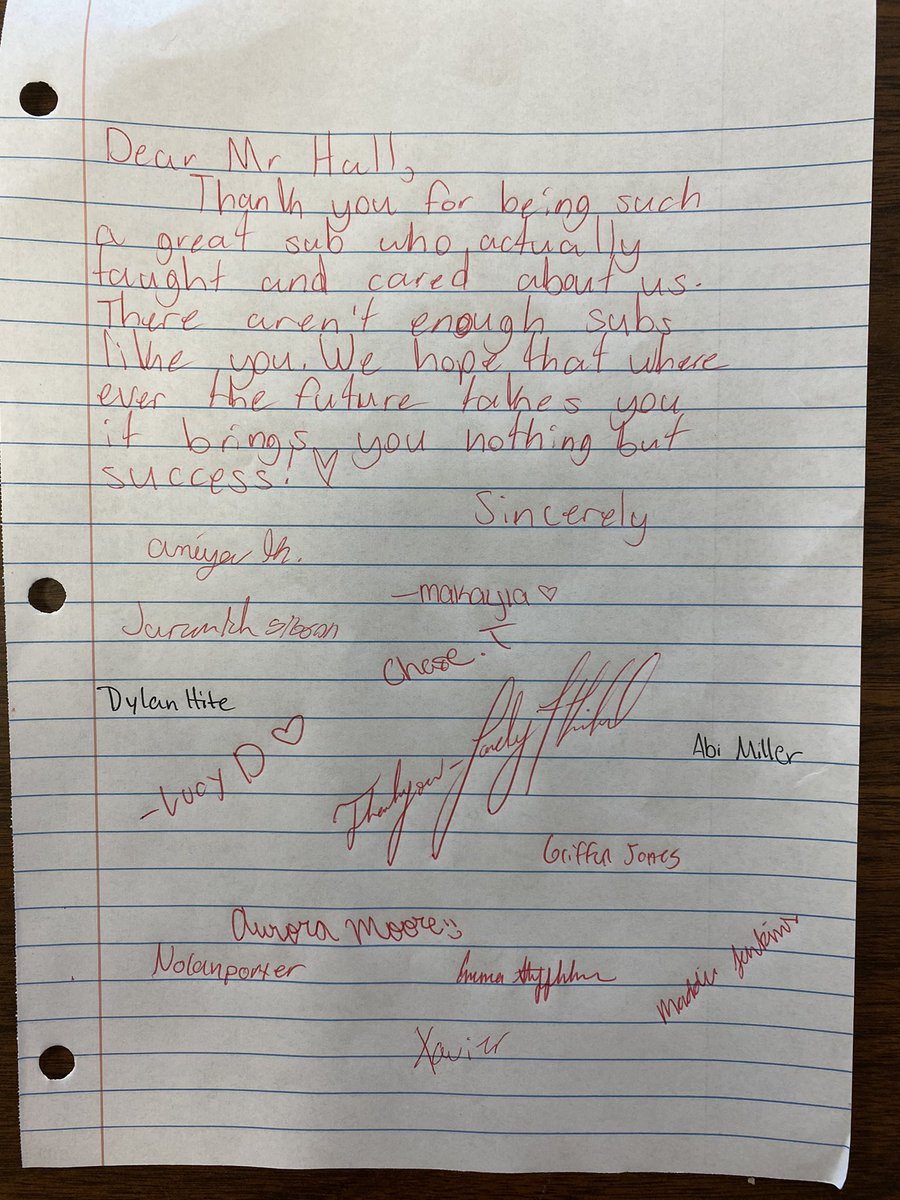 Dear Mr Hall,
Thank you for being such
a great sub who actually
taught and cared about us.
There aren't enough subs
like you. We hope that where
ever the future takes you
it brings you nothing but
success! ♡
Sincerely
aniya
-makayla ♡
Chase. T
Dylan Hite
-Lucy D ♡
Thankyou-
Abi Miller
Griffin Jones
Aurora Moore :)
Nolanporter
Emma
Maddie Jenkins
Xavier